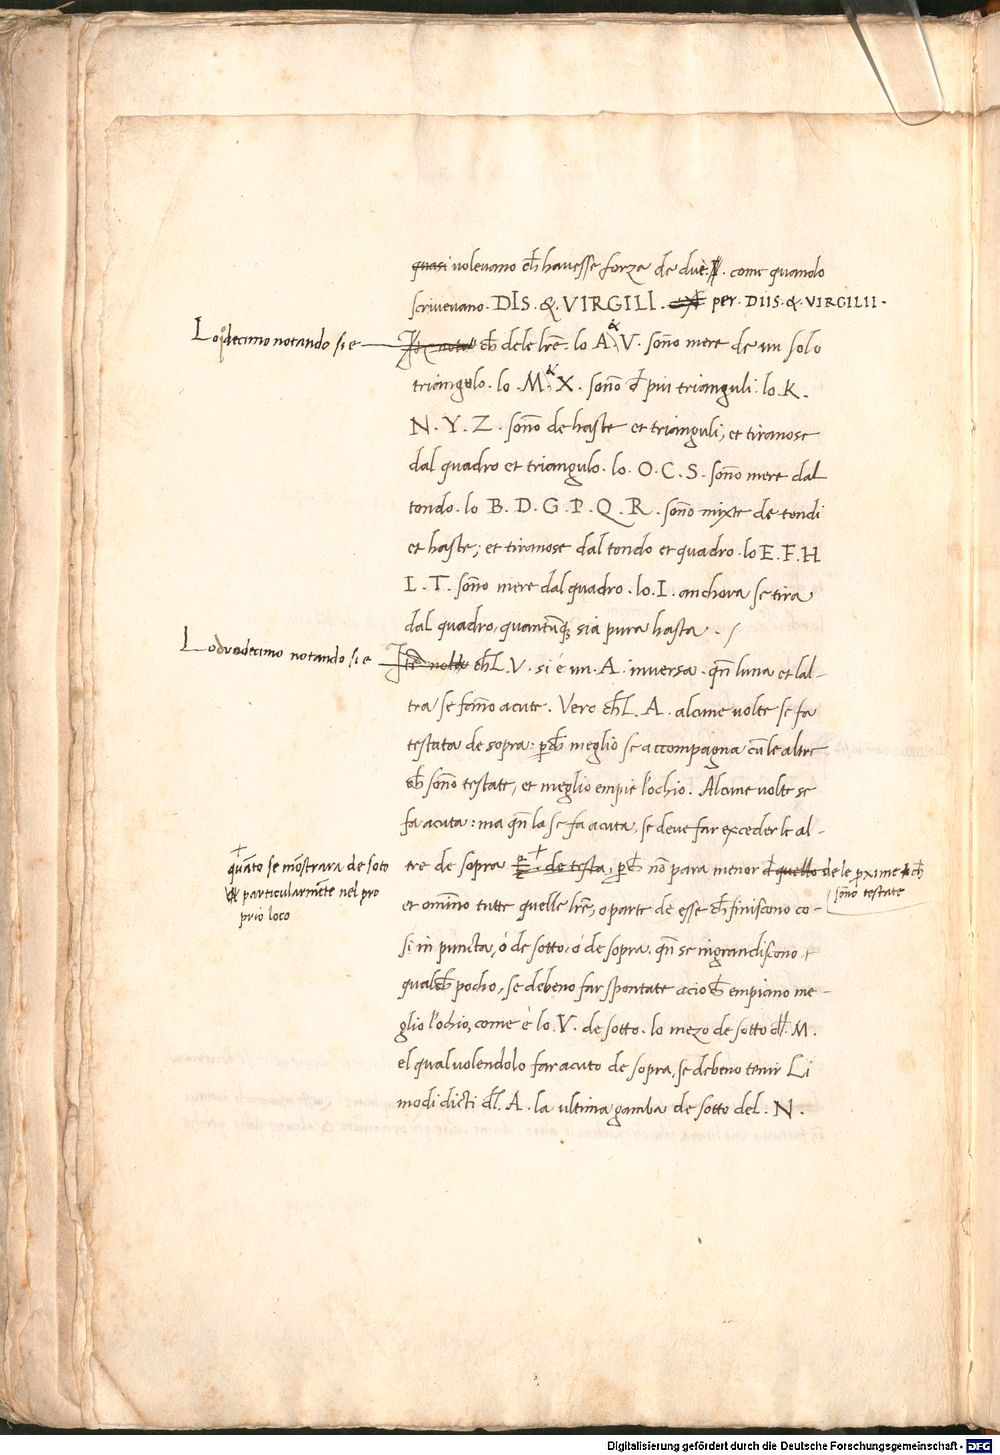 quasi volevano ch havesse forza de due .I. come quando
scrivevano . DIS . & . VIRGILI . per . DIIS . & . VIRGILII .
Lo decimo notando si e
ch dele lre . lo A & V . sono mere de un solo
triangolo . lo . M & X . sono d piu trianguli . lo . K .
N . Y . Z . sono de haste et trianguli, et tiranose
dal quadro et triangulo . lo . O . C . S . sono mere dal
tondo . lo B . D . G . P . Q . R . sono mixte de tondi
et haste; et tiranose dal tondo et quadro . lo E . F . H
L . T . sono mere dal quadro . lo . I . anchora se tira
dal quadro, quantunq sia pura hasta .
Lo duodecimo notando si e
chL . V . si é un . A . inversa . qn luna et lal-
tra se fanno acute . Vero chL . A . alcune volte se fa
testata de sopra : pch meglio se accompagna cum le altre
ch sono testate, et meglio empie l'ochio . Alcune volte se
fa acuta : ma qn la se fa acuta, se deve far exceder le al-
tre de sopra de testa, pch no para menor d quello de le pxime ch
sono testate
quanto se mostrara de soto
particularmente nel pro
prio loco
et omnino tutte quelle lre, o parte de esse ch finiscono co-
si in puncta, ó de sotto, ó de sopra, qn se ingrandiscono
qualch pocho, se debeno far spontate acioch empiano me-
glio l'ochio, come è lo . V . de sotto . lo mezo de sotto dl . M .
el qual volendolo far acuto de sopra, se debeno tenir Li
modi dicti dl . A . la ultima gamba de sotto del . N .
Digitalisierung gefördert durch die Deutsche Forschungsgemeinschaft - DFG